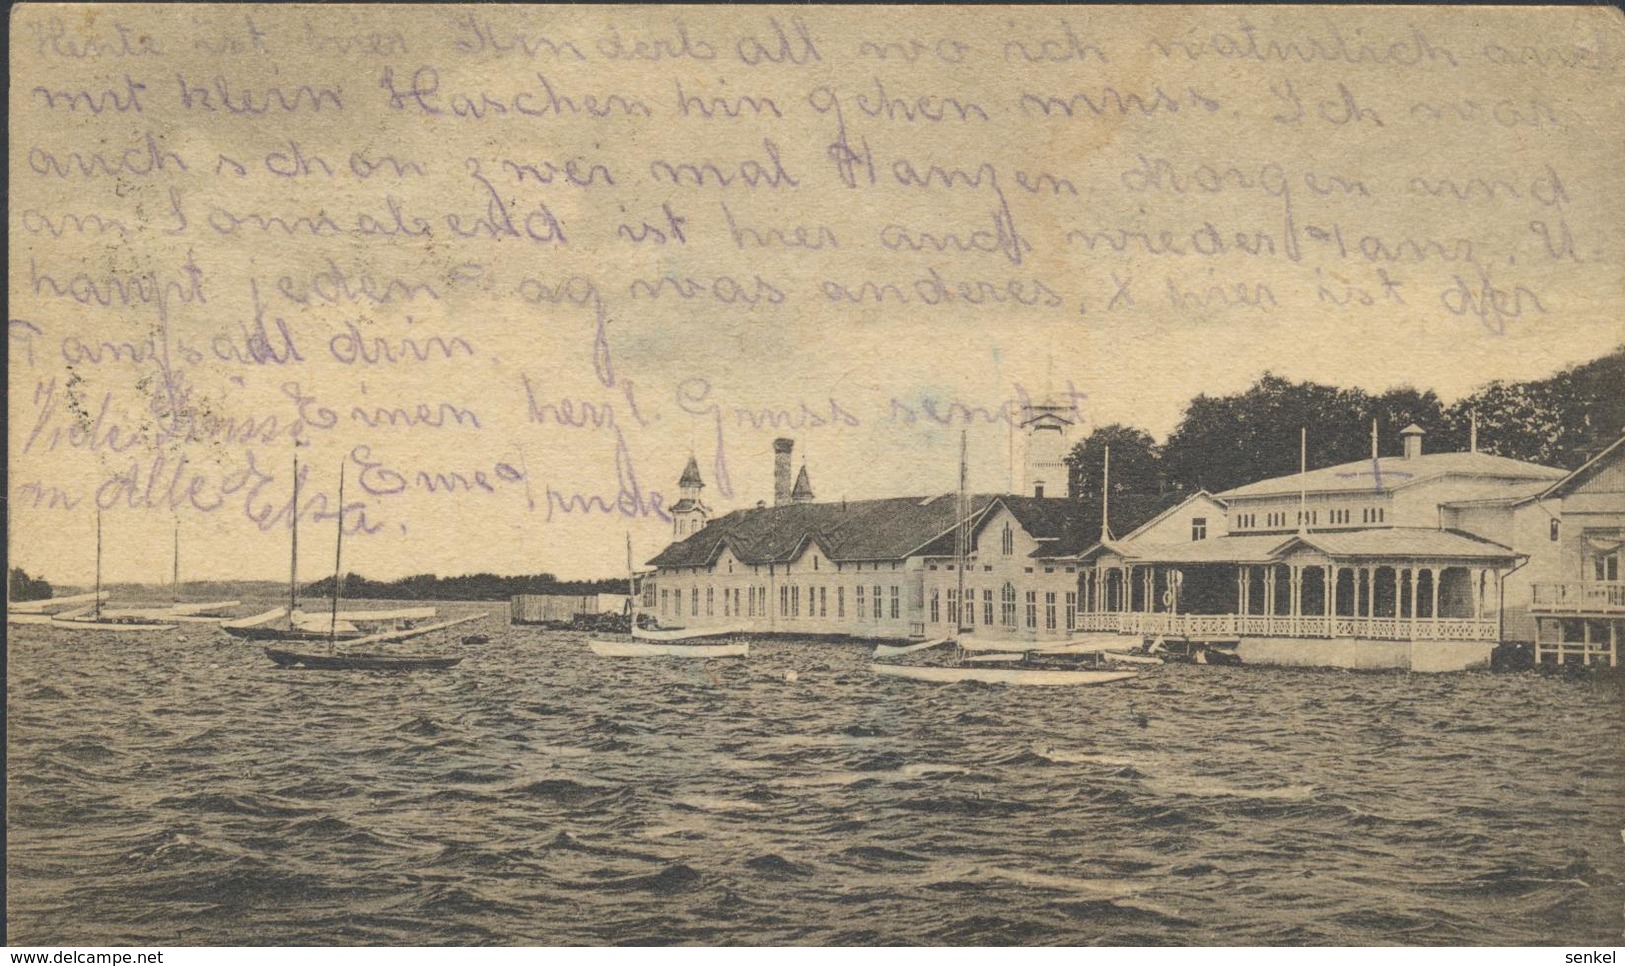 Heute ist hier Kinderball wo ich natürlich auch
mit klein Haschen hin gehen muss. Ich war
auch schon zwei mal Tanzen. Morgen und
am Sonnabend ist hier auch wieder Tanz. U-
haupt jeden Tag was anderes. X hier ist der
Tanzsaal drin.
Einen herzl. Gruss sendet
Eure Trude
Viele Grüsse
an Alle Elsa.
www.delcampe.net
senkel